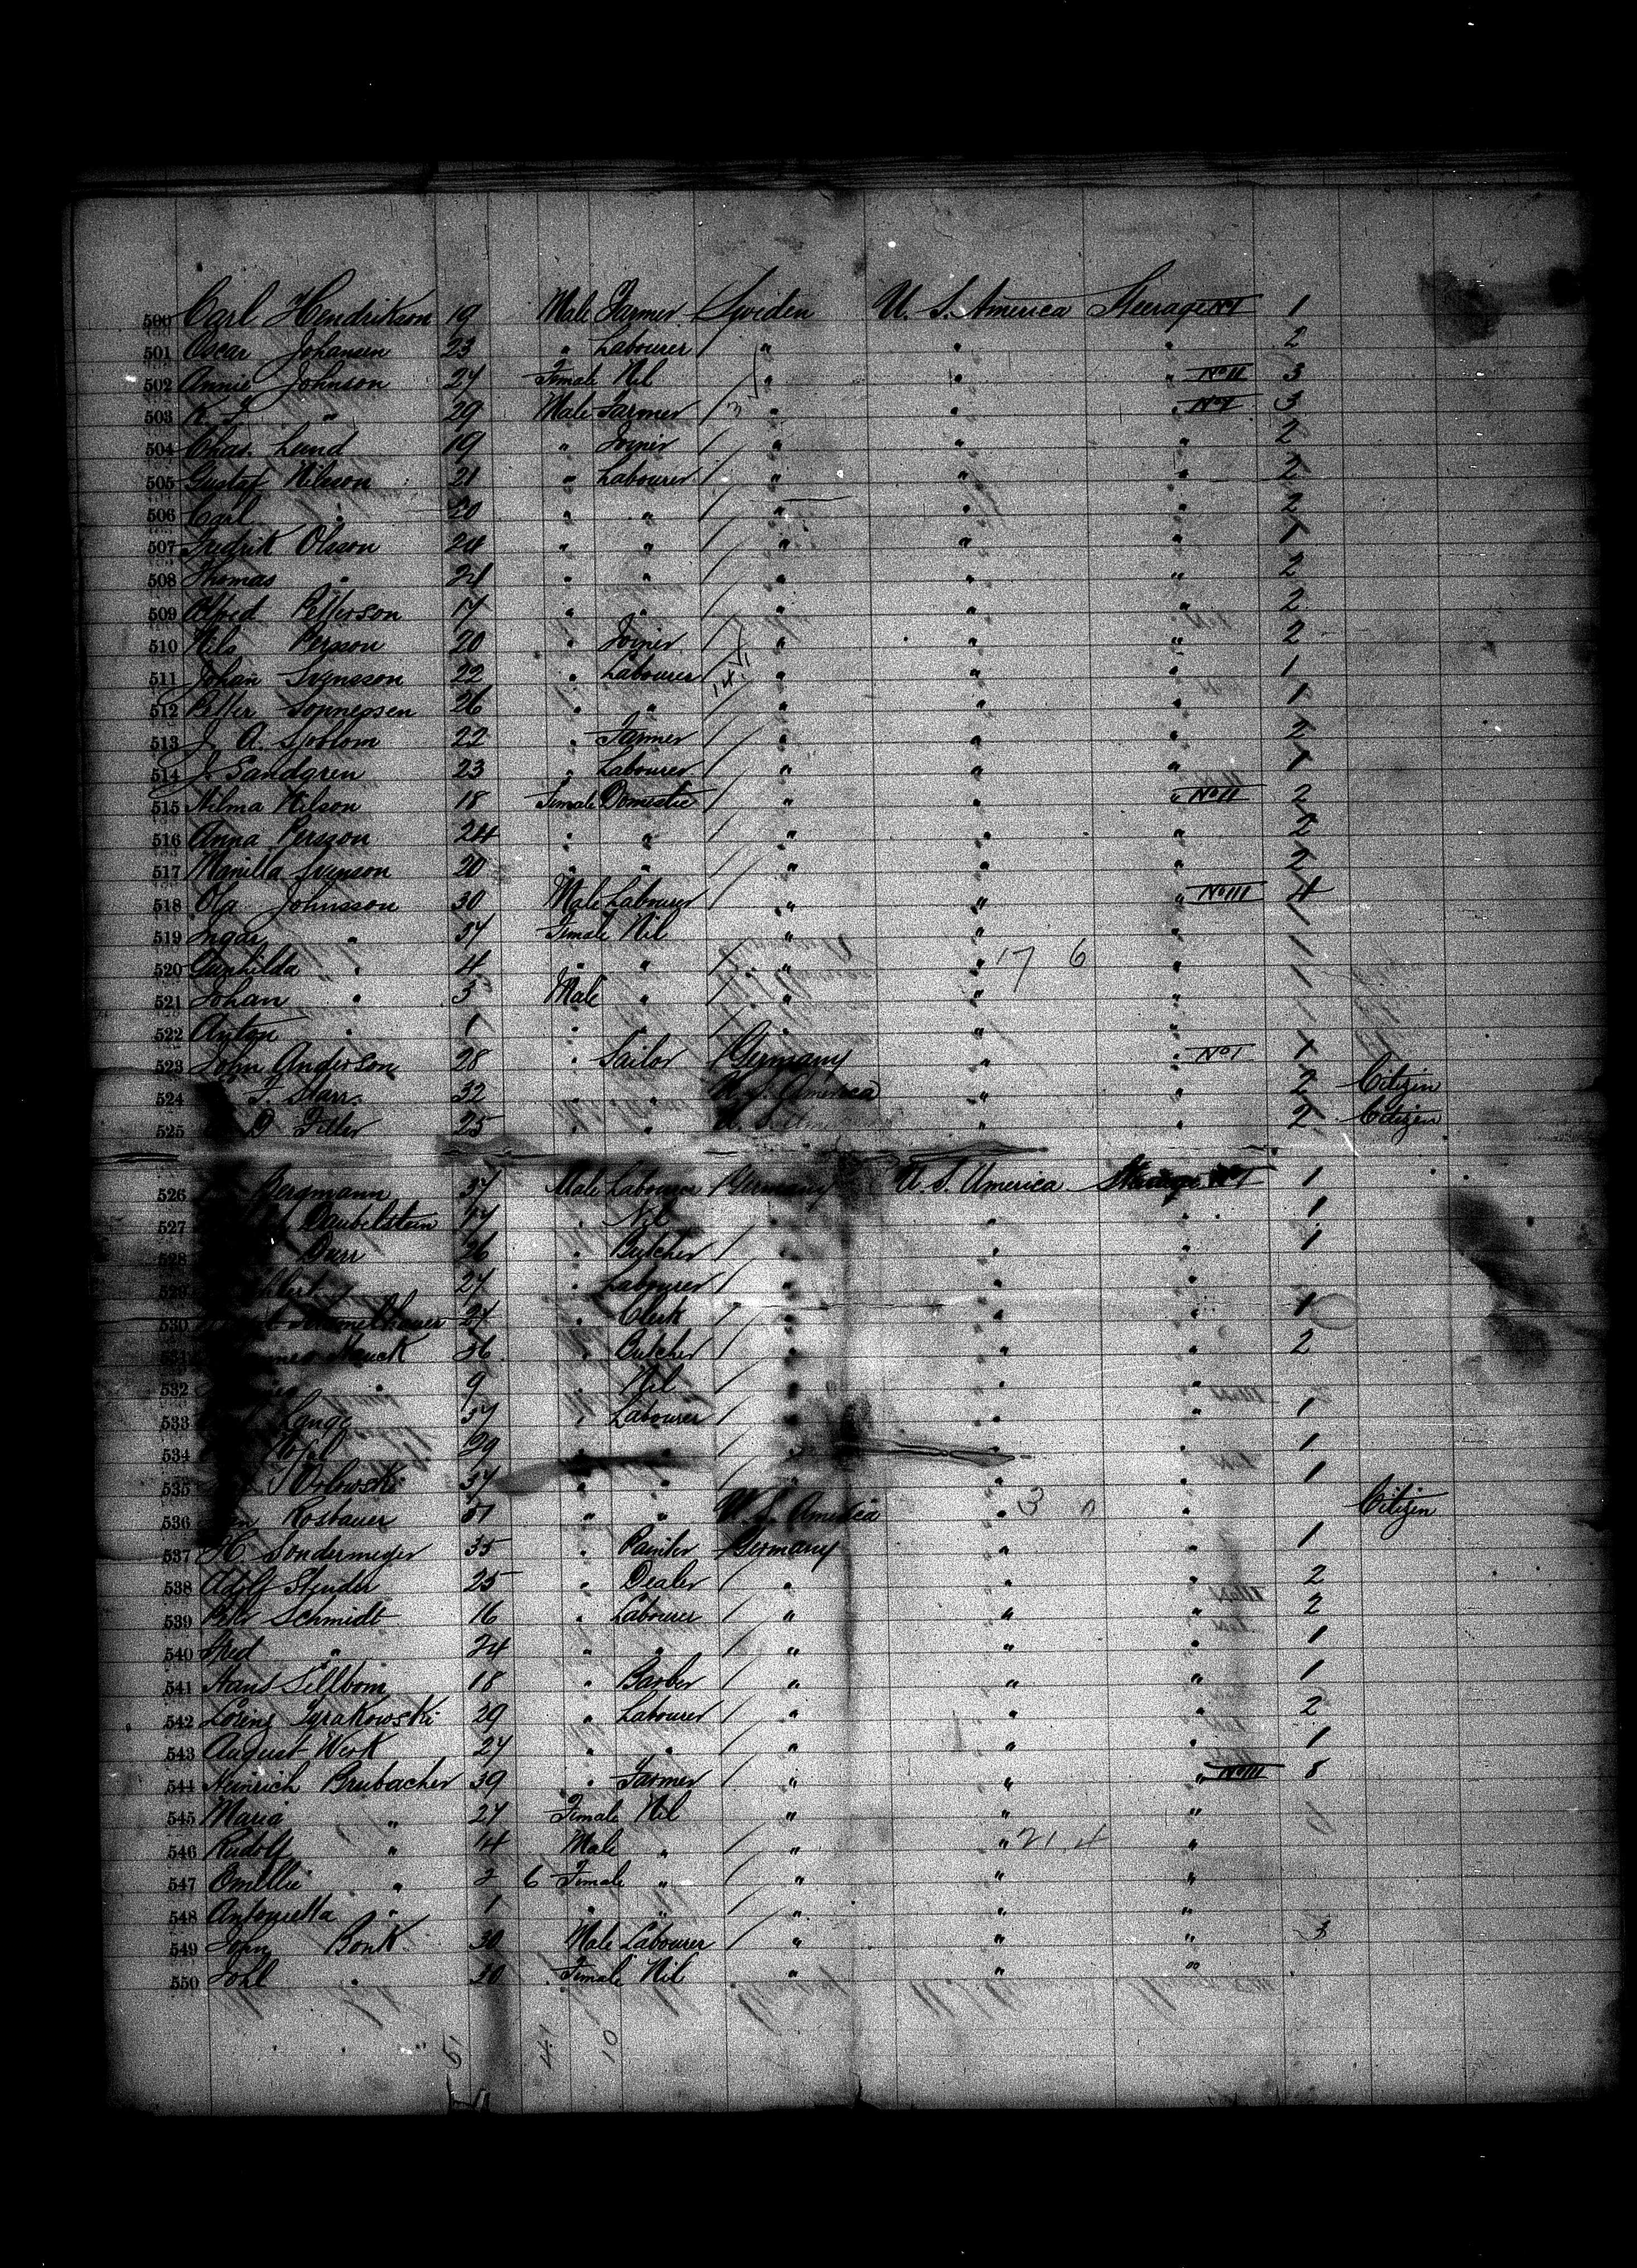 500 Carl Hendrikson 19 Male Farmer Sweden U. S. America Steerage No I 1
501 Oscar Johansen 23 " Labourer / " " " 2
502 Annie Johnson 27 Female Nil " " " No II 3
503 K. J. " 29 Male Farmer / " " " No I 3
504 Chas. Lund 19 " Joiner / " " " 2
505 Gustaf Nilsson 21 " Labourer / " " " 2
506 Carl " 20 " " / " " " 2
507 Fredrik Olsson 20 " " / " " " 1
508 Thomas " 24 " " / " " " 2
509 Alfred Petterson 17 " " / " " " 2
510 Nils Persson 20 " Joiner / " " " 2
511 Johan Svensson 22 " Labourer / " " " 1
512 Petter Sonnessen 26 " " / " " " 1
513 J. A. Sjoblom 22 " Farmer / " " " 2
514 J. Sandgren 23 " Labourer / " " " 1
515 Nilma Nilson 18 Female Domestic / " " " No II 2
516 Anna Persson 24 " " / " " " 2
517 Manilla Svenson 20 " " / " " " 2
518 Ola Johnsson 30 Male Labourer / " " " No III 4
519 Ingar " 37 Female Nil " " " 1
520 Gunhilda " 4 " " / " " 17 6 " 1
521 Johan " 3 Male " / " " " 1
522 Anton " 1 " " / " " "
523 John Anderson 28 " Sailor / Germany " " No I 1
524 T. Starr 32 " " U. S. America " " 2 Citizen
525 D Filler 25 " " " " 2 Citizen
526 Bergmann 37 Male Labourer / Germany U. S. America Steerage No I 1
527 Daubelstein 17 " Nil " " " 1
528 Durr 26 " Butcher / " " " 1
529 27 " Labourer / " " "
530 24 " Clerk / " " " 1
531 36 " Butcher / " " " 2
532 " 9 " Nil / " " "
533 Lange 37 " Labourer / " " " 1
534 29 " " / " " " 1
535 Orlowski 37 " " / " " " 1
536 Rosbauer 51 " " U. S. America " 3 " Citizen
537 H. Sondermeyer 35 " Painter Germany " " 1
538 Adolf Stender 25 " Dealer / " " " 2
539 Petr Schmidt 16 " Labourer / " " " 2
540 Fred " 24 " " / " " " 1
541 Hans Sillboin 18 " Barber / " " " 1
542 Lorinz Tyrakowski 29 " Labourer / " " " 2
543 August Werk 27 " " " " " 1
544 Heinrich Brubacher 39 " Farmer / " " " No III 8
545 Maria " 27 Female Nil " " "
546 Rudolf " 14 Male " / " " 21.4 "
547 Omillie " 2 6 Female " / " " "
548 Antonietta " 1 " " " " "
549 John Bonk 30 Male Labourer / " " " 3
550 Johl " 20 Female Nil " " "
41 10